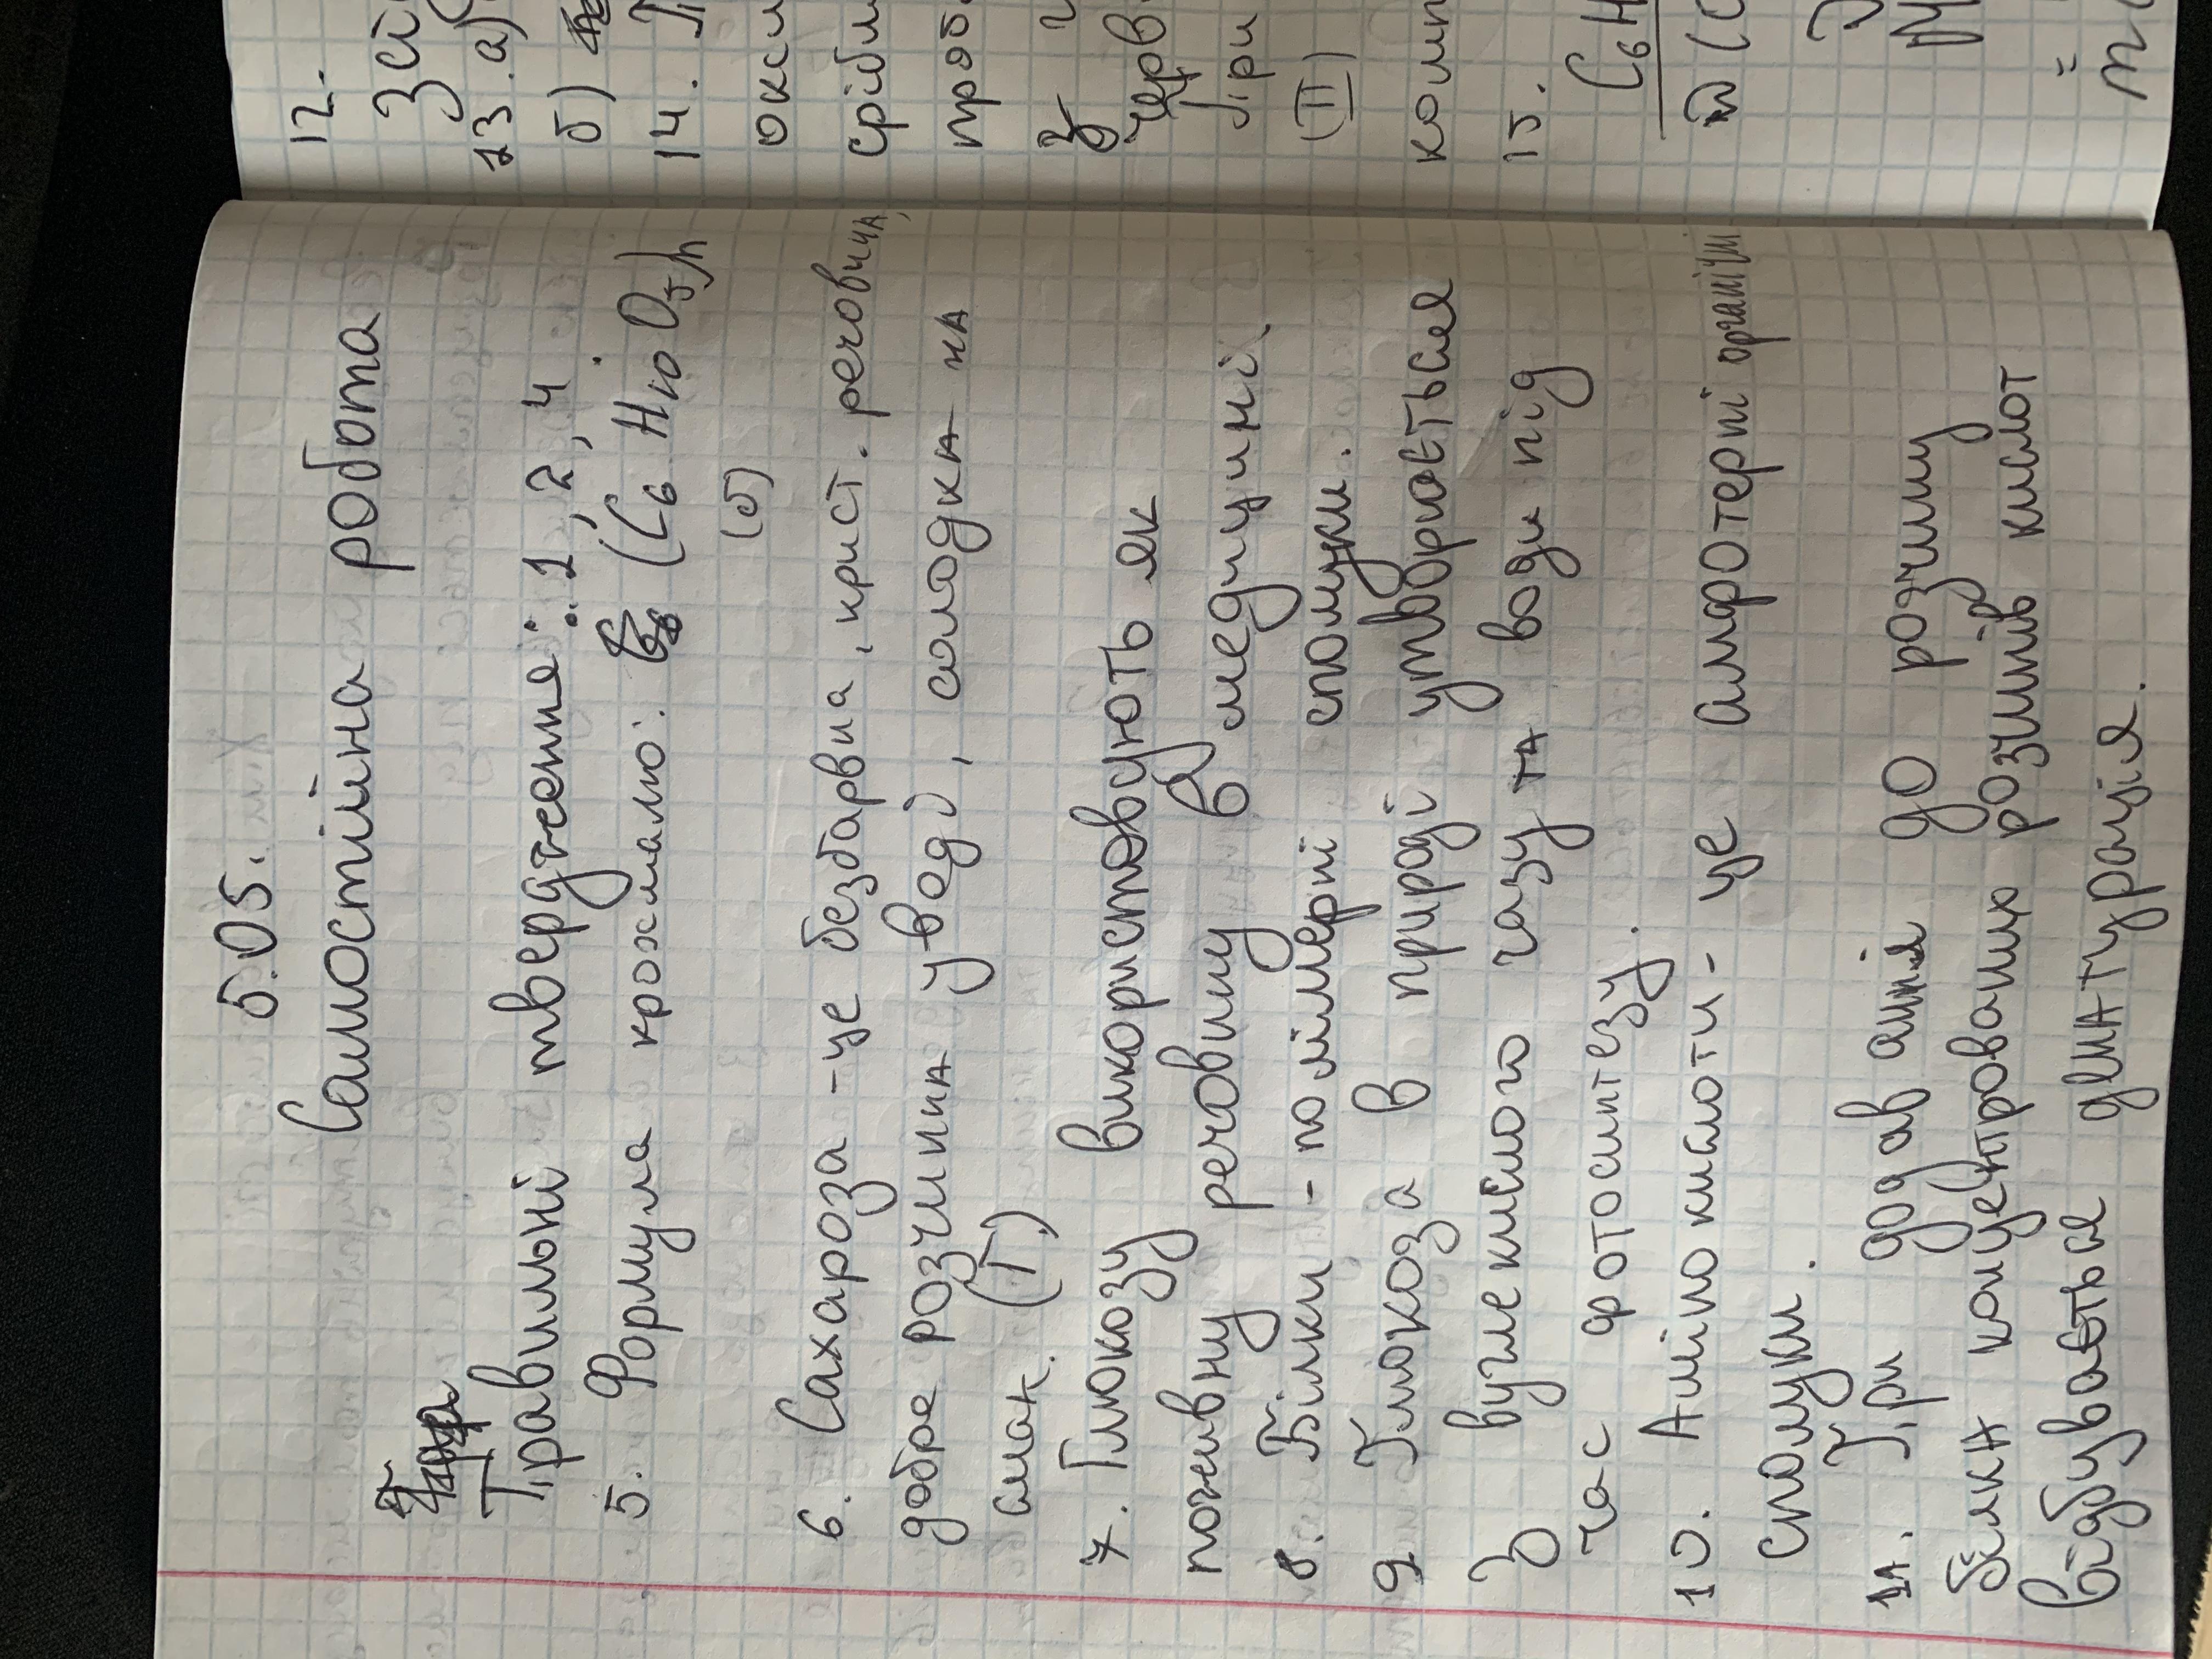 5.05.
Самостійна робота
Правильні твердження: 1, 2, 4
5. Формула крохмалю: (C6H10O5)n
(б)
6. Сахароза - це безбарвна, крист. речовина,
добре розчинна у воді, солодка на
смак. (Г)
7. Глюкозу використовують як
поживну речовину в медицині.
8. Білки - полімерні сполуки.
9. Глюкоза в природі утворюється
З вуглекислого газу та води під
час фотосинтезу.
10. Амінокислоти - це амфотерні органічні
сполуки.
11. При додаванні до розчину
білка концентрованих розчинів кислот
відбувається денатурація.
12.
13. а)
б)
14. П
окси
срібл
проб.
черв
При
(II)
комп
15.
C6H
(C
=
m(